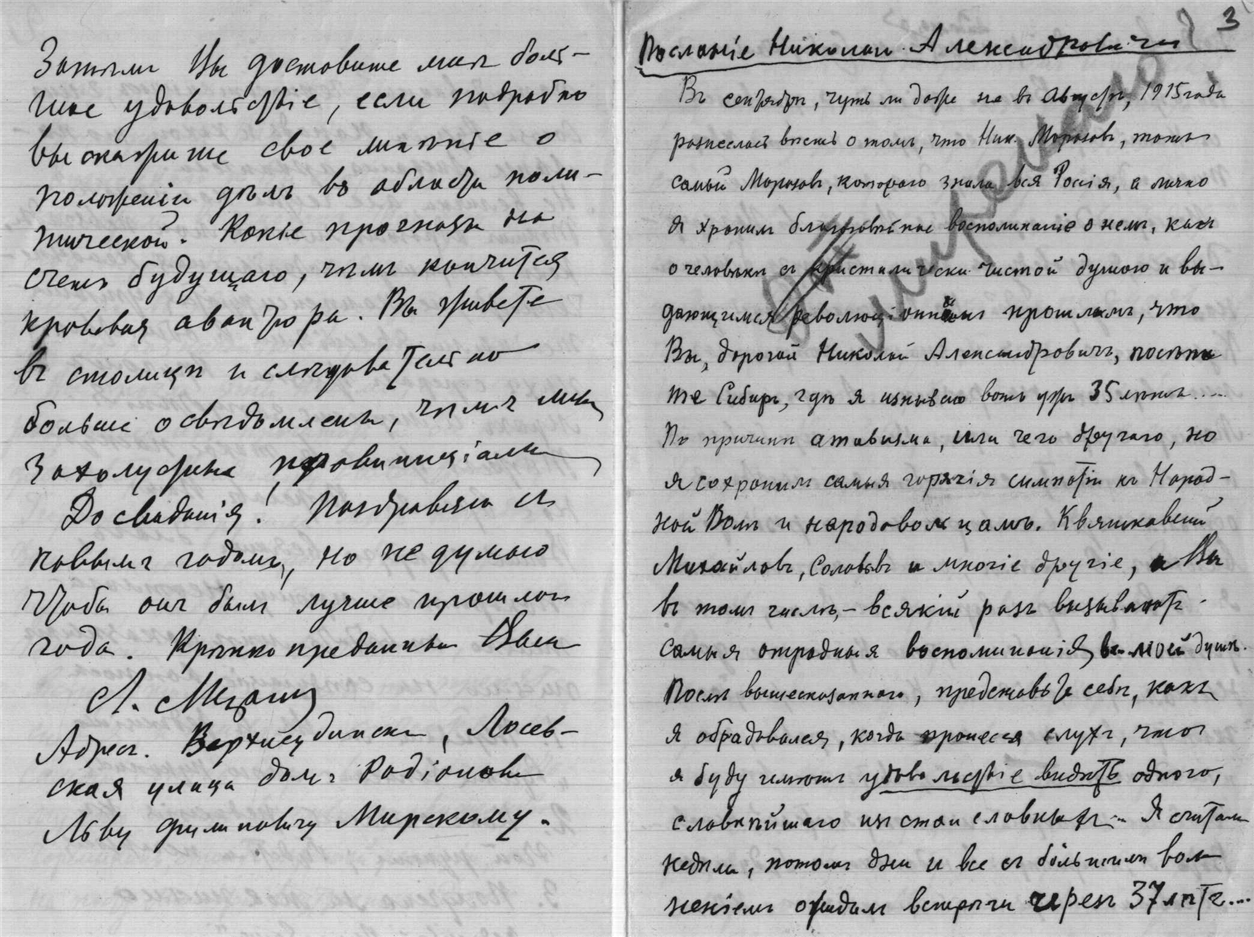 Затѣмъ Вы доставите мнѣ боль-
шое удовольствіе, если подробно
выскажите свое мнѣніе о
положеніи дѣлъ въ области поли-
тической. Какіе прогнозы на
счетъ будущаго, чѣмъ кончится
кровавая авантюра. Вы живете
въ столицѣ и слѣдовательно
больше освѣдомлены, чѣмъ мы
захолустные провинціалы
Досвиданія! Поздравляю съ
новымъ годомъ, но не думаю
чтобы онъ былъ лучше прошлаго
года. Крѣпко преданный Вамъ
Л. Мирскій
Адресъ. Верхнеудинскъ, Лосев-
ская улица домъ Родіонова
Льву Филиповичу Мирскому.
3
Посланіе Николаю Александровичу
Въ сентябрѣ, чуть ли даже не въ Августѣ, 1915 года
разнеслась вѣсть о томъ, что Ник. Морозовъ, тотъ
самый Морозовъ, котораго знала вся Россія, а лично
я хранилъ благоговѣйное воспоминаніе о немъ, какъ
о человѣкѣ съ кристалически чистой душою и вы-
дающимся революціоннымъ прошлымъ, что
Вы, дорогой Николай Александровичъ, посѣти-
те Сибирь, гдѣ я изнываю вотъ уже 35 лѣтъ....
По причинѣ атавизма, или чего другаго, но
я сохранилъ самыя горячія симпатіи къ Народ-
ной Волѣ и народовольцамъ. Квятковскій
Михайловъ, Соловьевъ и многіе другіе, а Вы
въ томъ числѣ, - всякій разъ вызываютъ
самыя отрадныя воспоминанія въ моей душѣ.
Послѣ вышесказаннаго, представьте себѣ, какъ
я обрадовался, когда пронесся слухъ, что
я буду имѣть удовольствіе видѣть одного,
славнѣйшаго изъ стаи славныхъ. Я считалъ
недѣли, потомъ дни и все съ большимъ вол
неніемъ ожидалъ встрѣчи черезъ 37 лѣтъ...